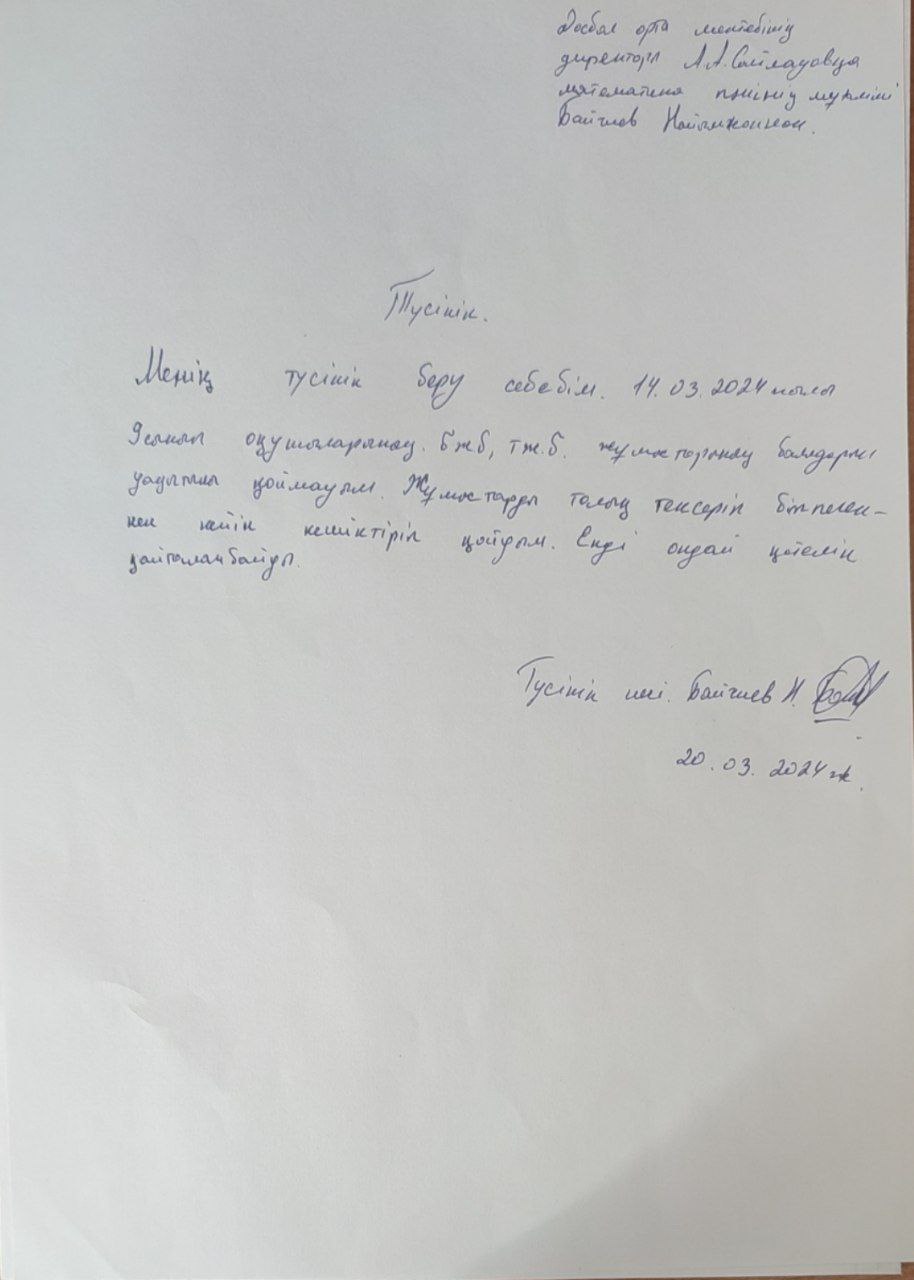 Досбол орта мектебінің
директоры А.А.Сайларовқа
математика пәнінің мұғалімі
Байчиев Найымжоннан.
Түсінік.
Менің түсінік беру себебім. 14.03.2024 жылы
9 сынып оқушыларының. бжб, тж.б. жұмыстарының балдарын
уақытылы қоймауым. Жұмыстарды толық тексеріп бітпеген-
нен кейін кешіктіріп қойдым. Енді ондай қателік
қайталанбайды.
Түсінік иесі. Байчиев Н.
20.03.2024 ж.